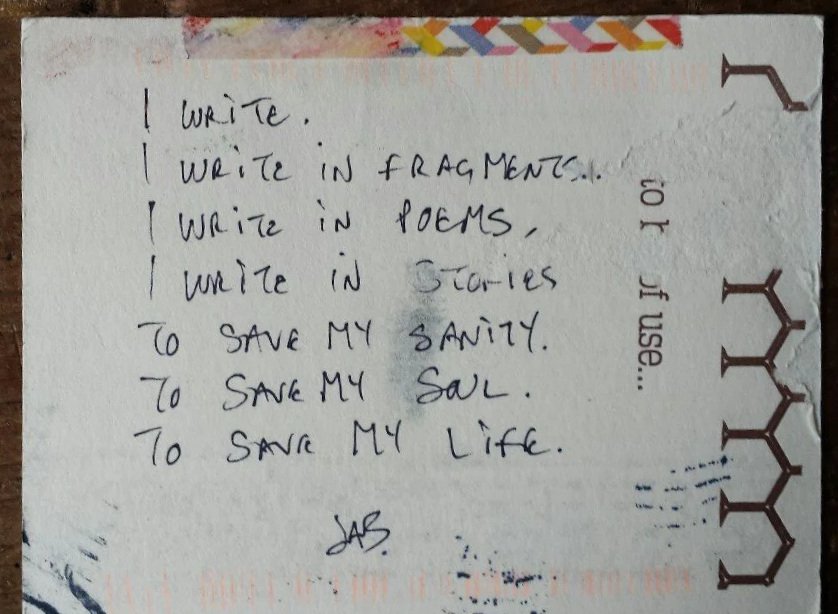 I WRITE.
I WRITE IN FRAGMENTS..
I WRITE IN POEMS,
I WRITE IN Stories
TO SAVE MY SANITY.
TO SAVE MY SOUL.
TO SAVE MY LIFE.
JAB.
to
of use...